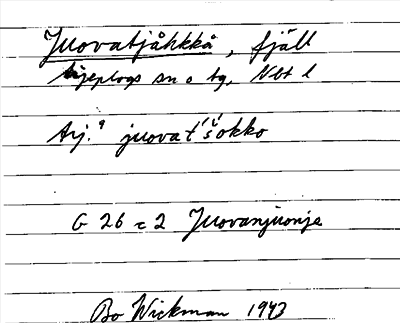 Juovatjåhkkå, fjäll
Arjeplogs sn o tg, Nbt l
Arj. juovat´šokko
G 26 c 2 Juovanjuonje
Bo Wickman 1943